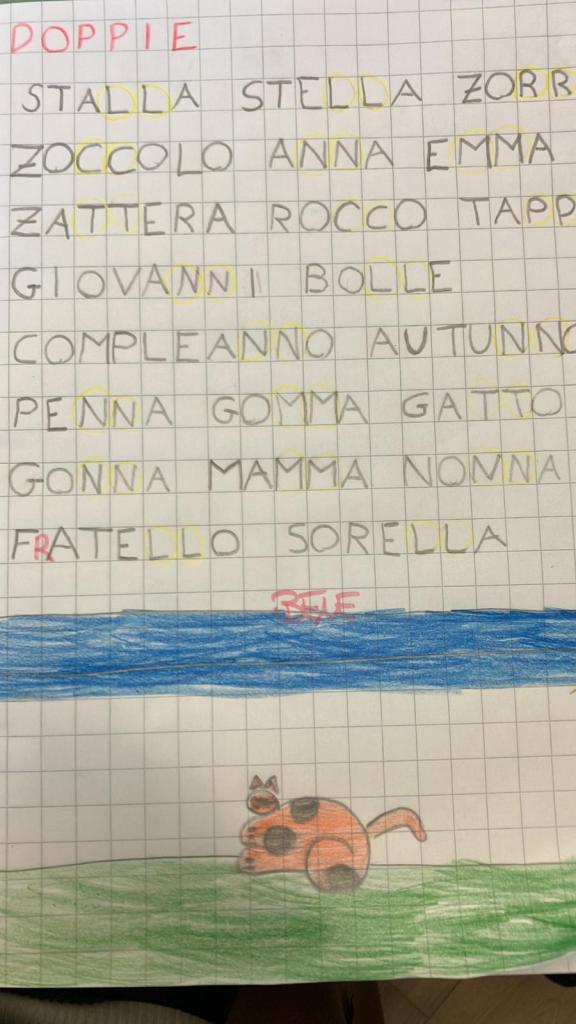 DOPPIE
STALLA STELLA ZORR
ZOCCOLO ANNA EMMA
ZATTERA ROCCO TAPP
GIOVANNI BOLLE
COMPLEANNO AUTUNNO
PENNA GOMMA GATTO
GONNA MAMMA NONNA
FRATELLO SORELLA